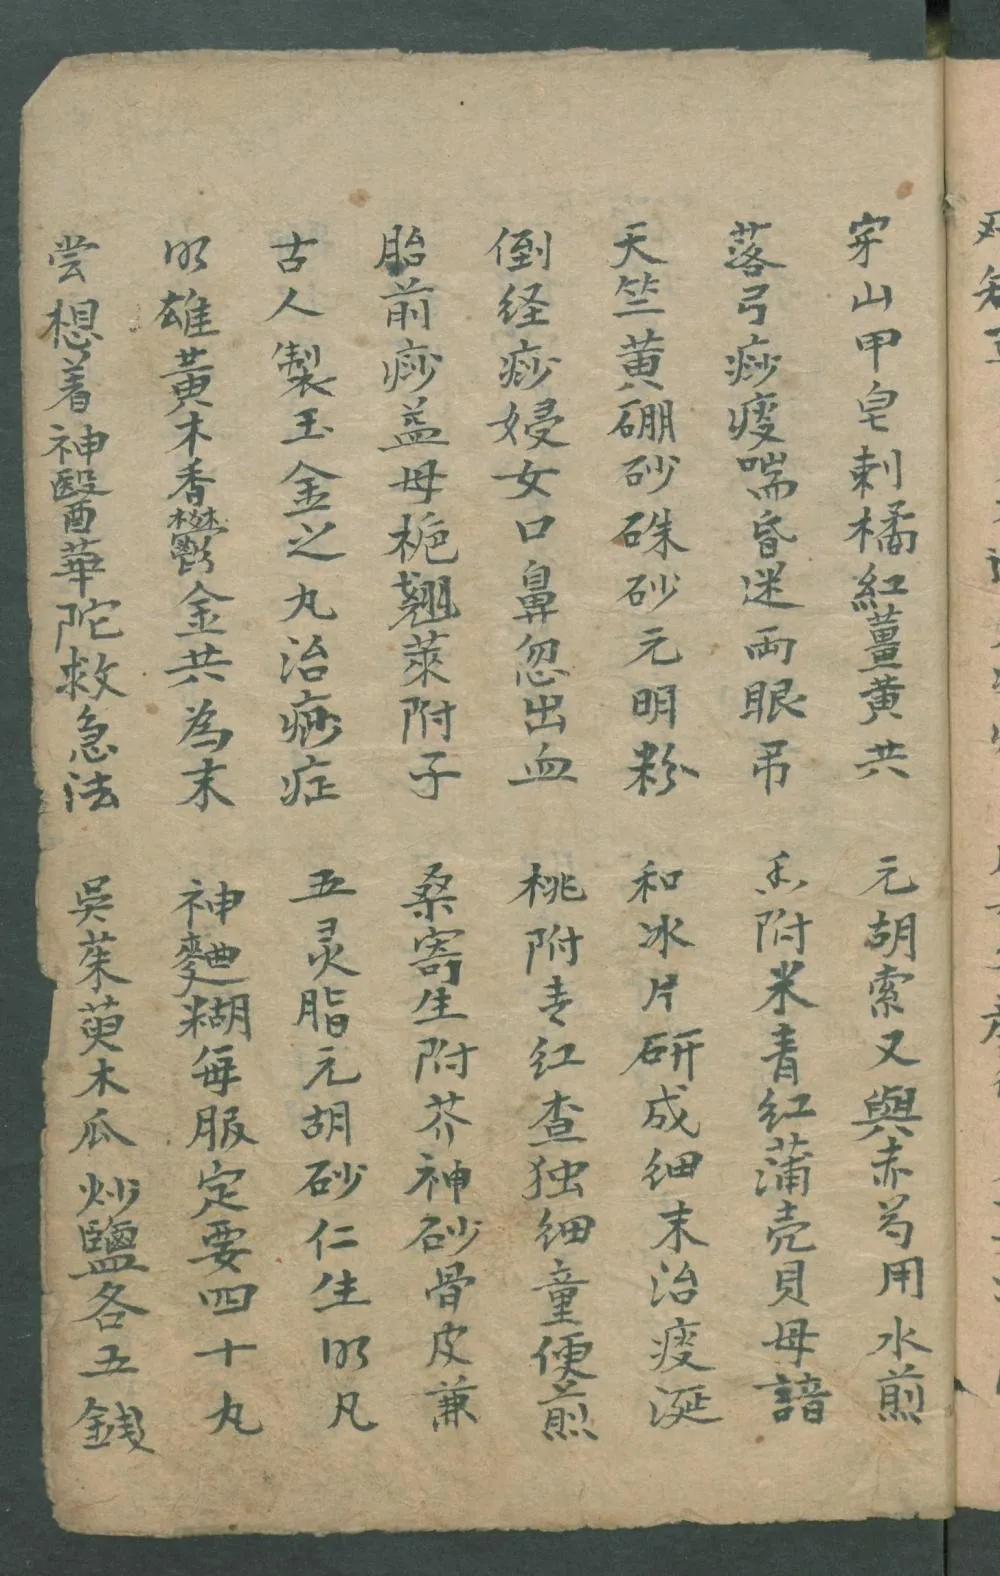 穿山甲皂刺橘紅薑黄共 元胡索又與赤芍用水煎
落弓痧痰喘昏迷两眼吊 香附米青红蒲壳貝母諳
天竺黄硼砂硃砂元明粉 和冰片研成细末治痰涎
倒経痧婦女口鼻忽出血 桃附青红查独细童便煎
胎前痧益母栀翘萊附子 桑寄生附芥神砂骨皮兼
古人製玉金之丸治痧症 五灵脂元胡砂仁生明凡
明雄黄木香鬱金共為末 神麯糊每服定要四十丸
尝想着神醫華陀救急法 吳茱萸木瓜炒鹽各五錢